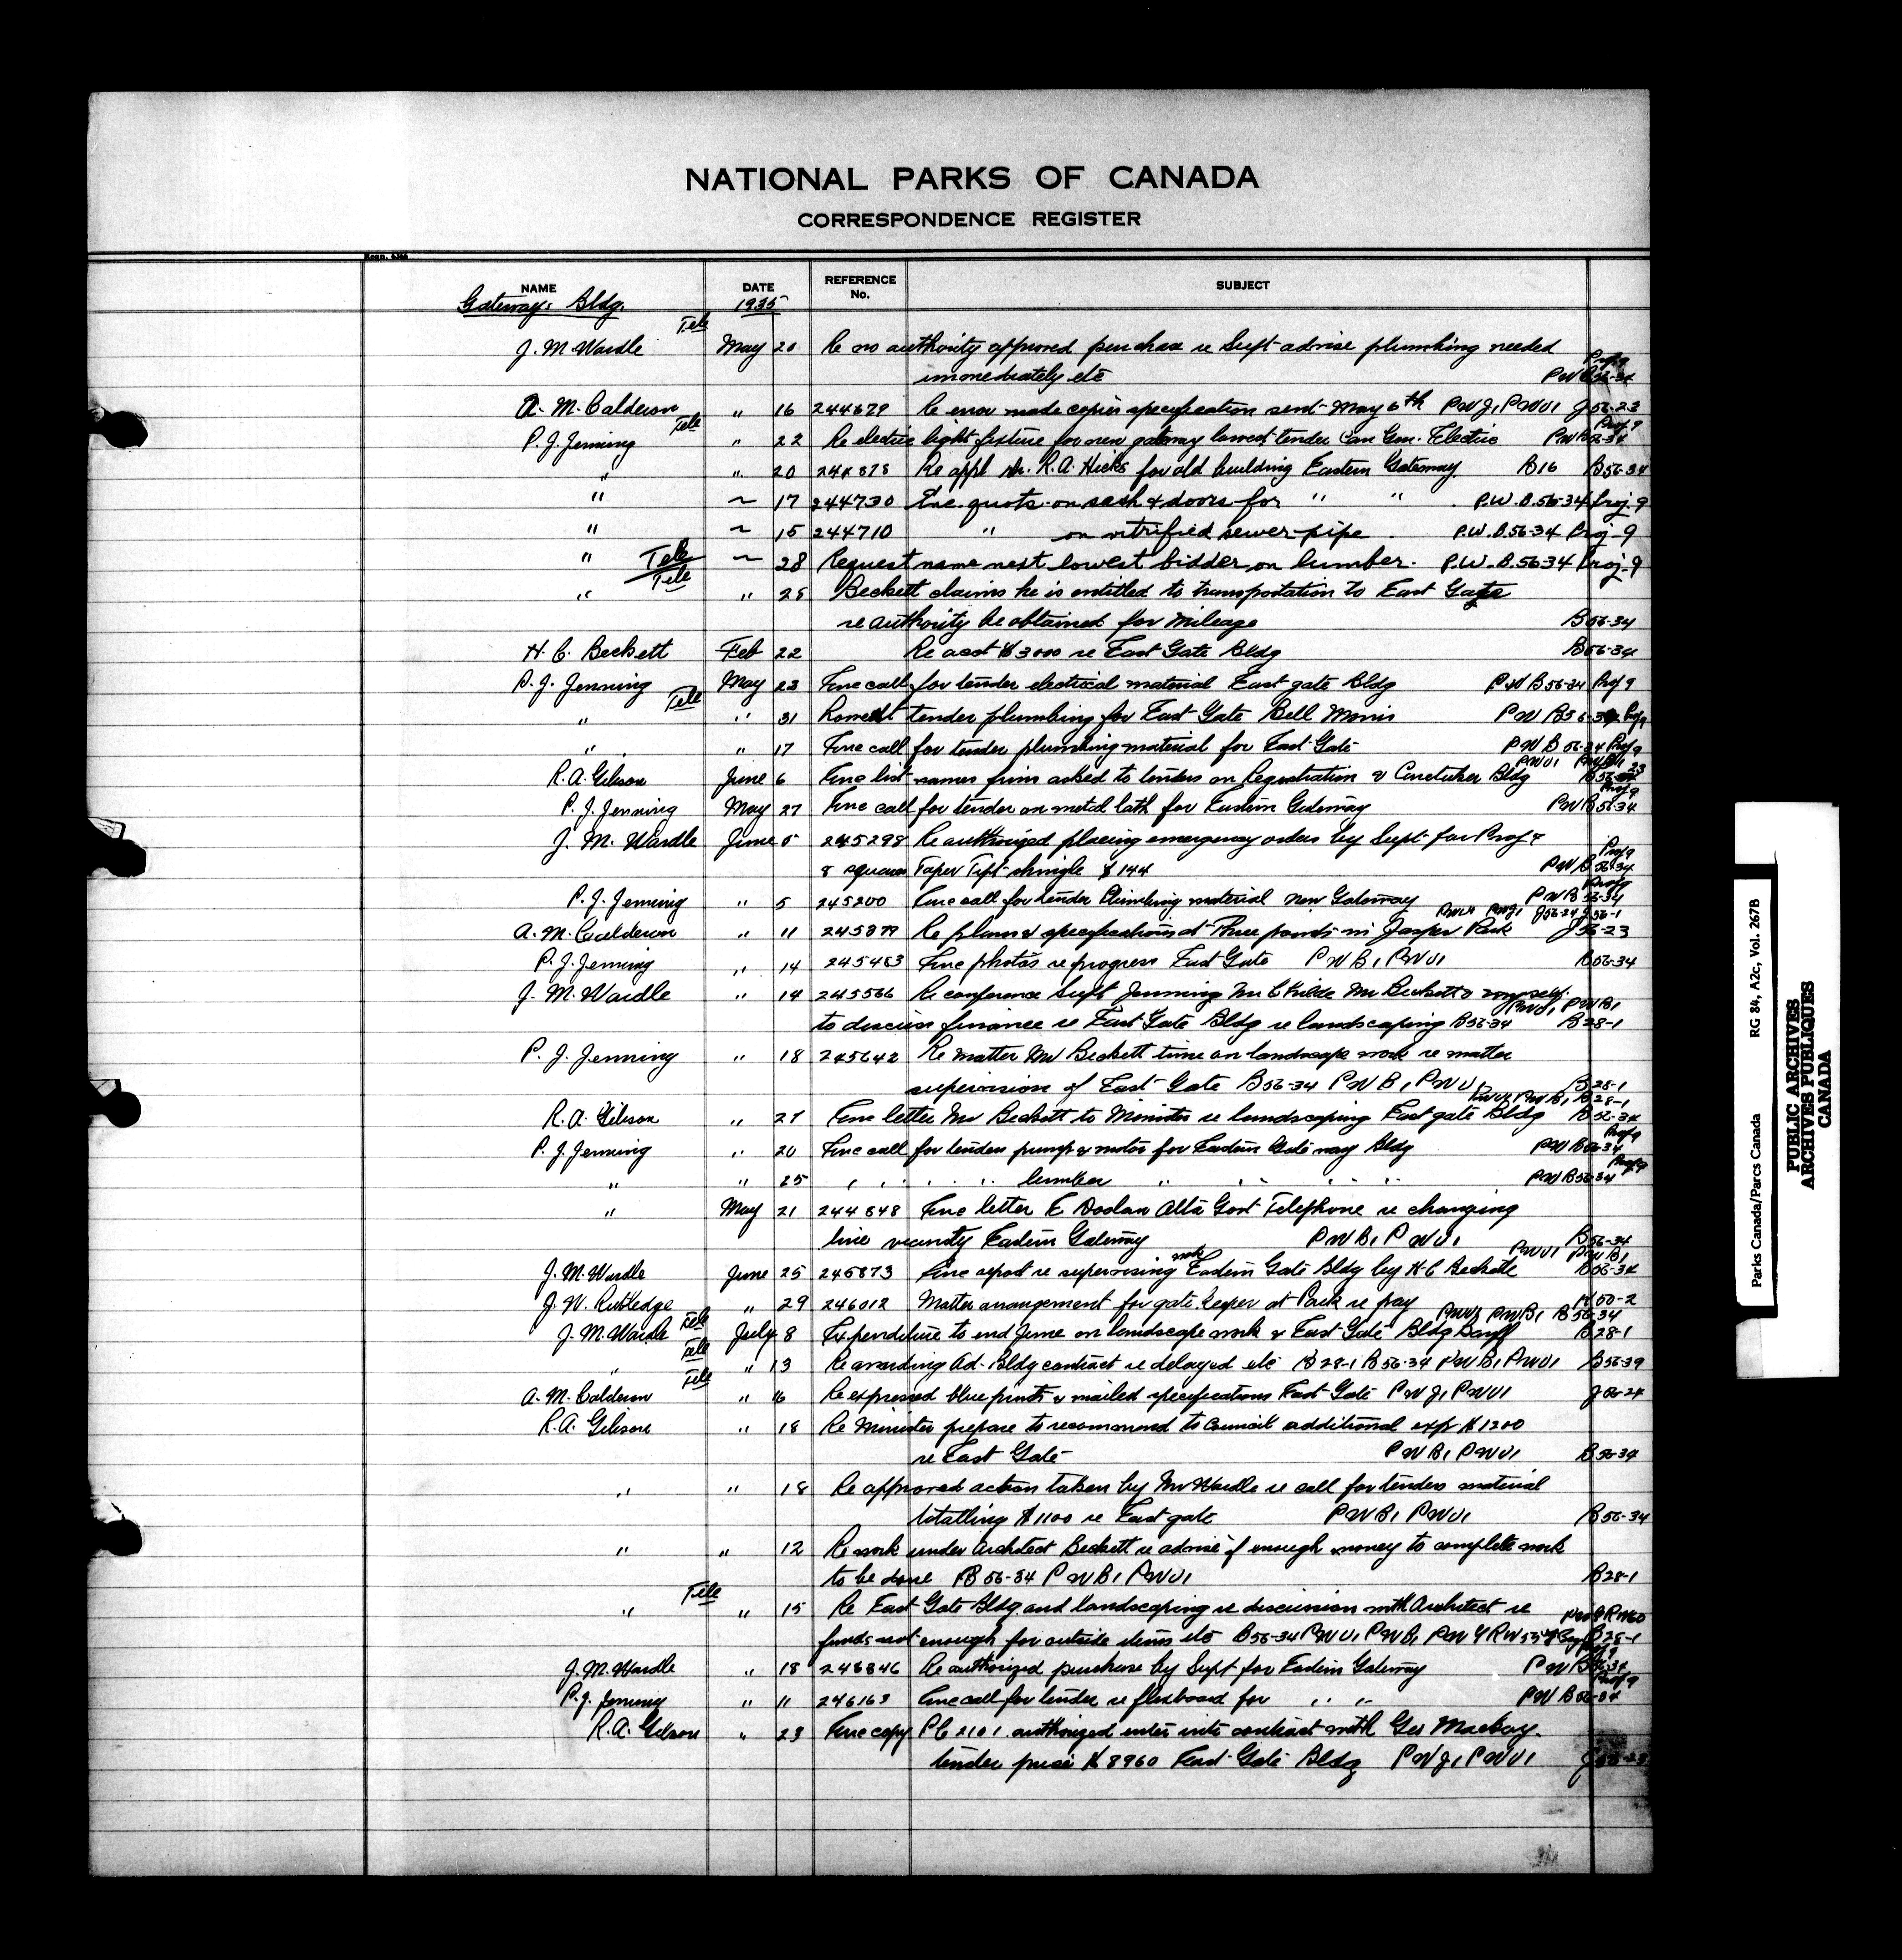 NATIONAL PARKS OF CANADA
CORRESPONDENCE REGISTER
NAME DATE REFERENCE No. SUBJECT
Gateways Bldg. 1935
Tele
J. M. Wardle May 20 Re no authority approved purchase re Supt advise plumbing needed
immediately etc PW B56-34 Proj 9
A. M. Calderon " 16 244679 Re error made copies specification sent May 6th PWJ1 PWU1 J56-23
Tele
P. J. Jenning " 22 Re electric light fixture for new gateway lowest tender Can Gen. Electric PWB56-34 Proj 9
" " 20 244878 Re appl Mr. R. A. Hicks for old building Eastern Gateway. B16 B56-34
" ~ 17 244730 Enc. quots. on sash & doors for " " . P.W. B.56-34 Proj-9
" ~ 15 244710 " on vitrified sewer-pipe . P.W. B.56-34 Proj-9
" Tele ~ 28 Request name next lowest bidder on lumber. P.W. B.56-34 Proj-9
Tele
" " 28 Beckett claims he is entitled to transportation to East Gate
re authority be obtained for mileage B56-34
H. C. Beckett Feb 22 Re acct $3000 re East Gate Bldg B56-34
P. J. Jenning May 23 Enc call for tender electrical material East gate Bldg PW B56-34 Proj 9
Tele
" " 31 Lowest tender plumbing for East Gate Bell Morris PW B56-34 Proj 9
" " 17 Enc call for tender plumbing material for East Gate PW B56-34 Proj 9
PWU1 PWB1 23
R. A. Gibson June 6 Enc list names firms asked to tenders on Registration & Caretaker Bldg
P. J. Jenning May 27 Enc call for tender on metal lath for Eastern Gateway PWB56-34 Proj 9
J. M. Wardle June 5 245298 Re authorized placing emergency orders by Supt for Proj 9
8 squares Taper Tipt shingle $144 PW B56-34 Proj 9
P. J. Jenning " 5 245200 Enc call for tender Plumbing material New Gateway PWB 56-34 Proj 9
PWU1 PWJ1 J56-24 J56-1
A. M. Calderon " 11 245879 Re plans & specifications at Three points in Jasper Park J56-23
P. J. Jenning " 14 245463 Enc photos re progress East Gate PWB1 PWU1 B56-34
J. M. Wardle " 14 245566 Re conference Supt Jenning Mr Childe Mr Beckett & myself
PWU1 PWB1
to discuss finance re East Gate Bldg re landscaping B56-34 B28-1
P. J. Jenning " 18 245642 Re matter Mr Beckett time on landscape work re matter
supervision of East Gate B56-34 PWB1 PWU1 B28-1
PWU1 PWB1 B28-1
R. A. Gibson " 27 Enc letter Mr Beckett to Minister re landscaping East gate Bldg B56-34
P. J. Jenning " 20 Enc call for tenders pump & motor for Eastern Gateway Bldg PWB56-34 Proj 9
" " 25 " " " " lumber " " " " PWB56-34 Proj 9
" May 21 244848 Enc letter E Doolan Alta Govt Telephone re changing
line vicinity Eastern Gateway PWB1 PWU1 B56-34
work PWU1 PWB1
J. M. Wardle June 25 245873 Enc report re supervising Eastern Gate Bldg by H. C. Beckett B56-34
J. W. Rutledge " 29 246012 Matter arrangement for gate keeper at Park re pay H60-2
Tele PWU1 PWB1 B56-34
J. M. Wardle July 8 Expenditure to end June on landscape work & East Gate Bldg Banff B28-1
Tele
" " 13 Re awarding Ad. Bldg contract re delayed etc B28-1 B56-34 PWB1 PWU1 B56-39
Tele
A. M. Calderon " 16 Re expressed blue prints & mailed specifications East Gate PWJ1 PWU1 J56-24
R. A. Gibson " 18 Re Minister prepare to recommend to Council additional exp $1200
re East Gate PWB1 PWU1 B56-34
" " 18 Re approved action taken by Mr Wardle re call for tenders material
totalling $1100 re East gate PWB1 PWU1 B56-34
" " 12 Re work under Architect Beckett re advise if enough money to complete work
to be done B56-34 PWB1 PWU1 B28-1
Tele
" " 15 Re East Gate Bldg and landscaping re discussion with Architect re
funds not enough for outside items etc B56-34 PWU1 PWB1 B28-1
J. M. Wardle " 18 246846 Re authorized purchase by Supt for Eastern Gateway PWB56-34 Proj 9
P. J. Jenning " 11 246163 Enc call for tender re flexboard for " " PWB56-34 Proj 9
R. A. Gibson " 23 Enc copy PC 2101 authorized enter into contract with Geo Mackay.
tender price $8960 East Gate Bldg PWJ1 PWU1
Parks Canada/Parcs Canada RG 84, A2c, Vol. 267B
PUBLIC ARCHIVES
ARCHIVES PUBLIQUES
CANADA